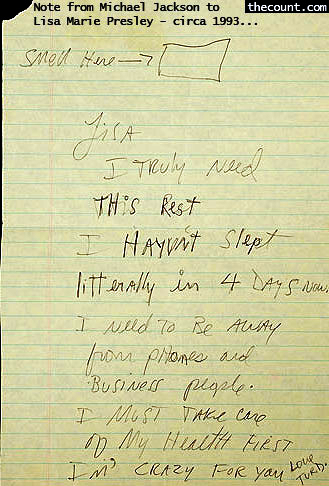 Note from Michael Jackson to
thecount.com
Lisa Marie Presley - circa 1993...
Smell Here
Lisa
I Truly Need
This Rest
I Havun't Slept
litterally in 4 Days Now.
I need To Be Away
from pHones and
Business people.
I Must Take Care
of My Health First
I'm' Crazy For You Love
Turd.